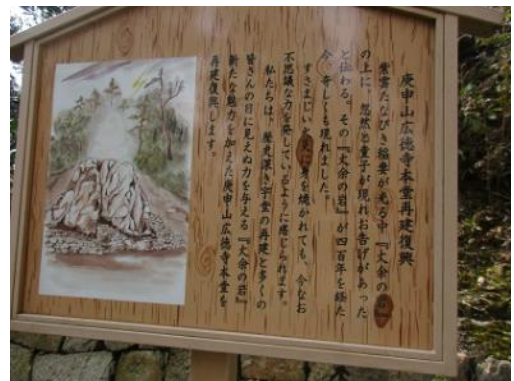 庚申山広徳寺本堂再建復興
紫雲たなびき稲妻が光る中『丈余の岩』
の上に、忽然と童子が現れお告げがあった
と伝わる。その『丈余の岩』が四百年を経た
今、奇しくも現れました。
すさまじい火炎に身を焼かれても、今なお
不思議な力を発しているように感じられます。
私たちは、歴史深き字堂の再建と多くの
皆さんの目に見えぬ力を与える『丈余の岩』
新たな魅力を加えた庚申山広徳寺本堂を
再建復興します。